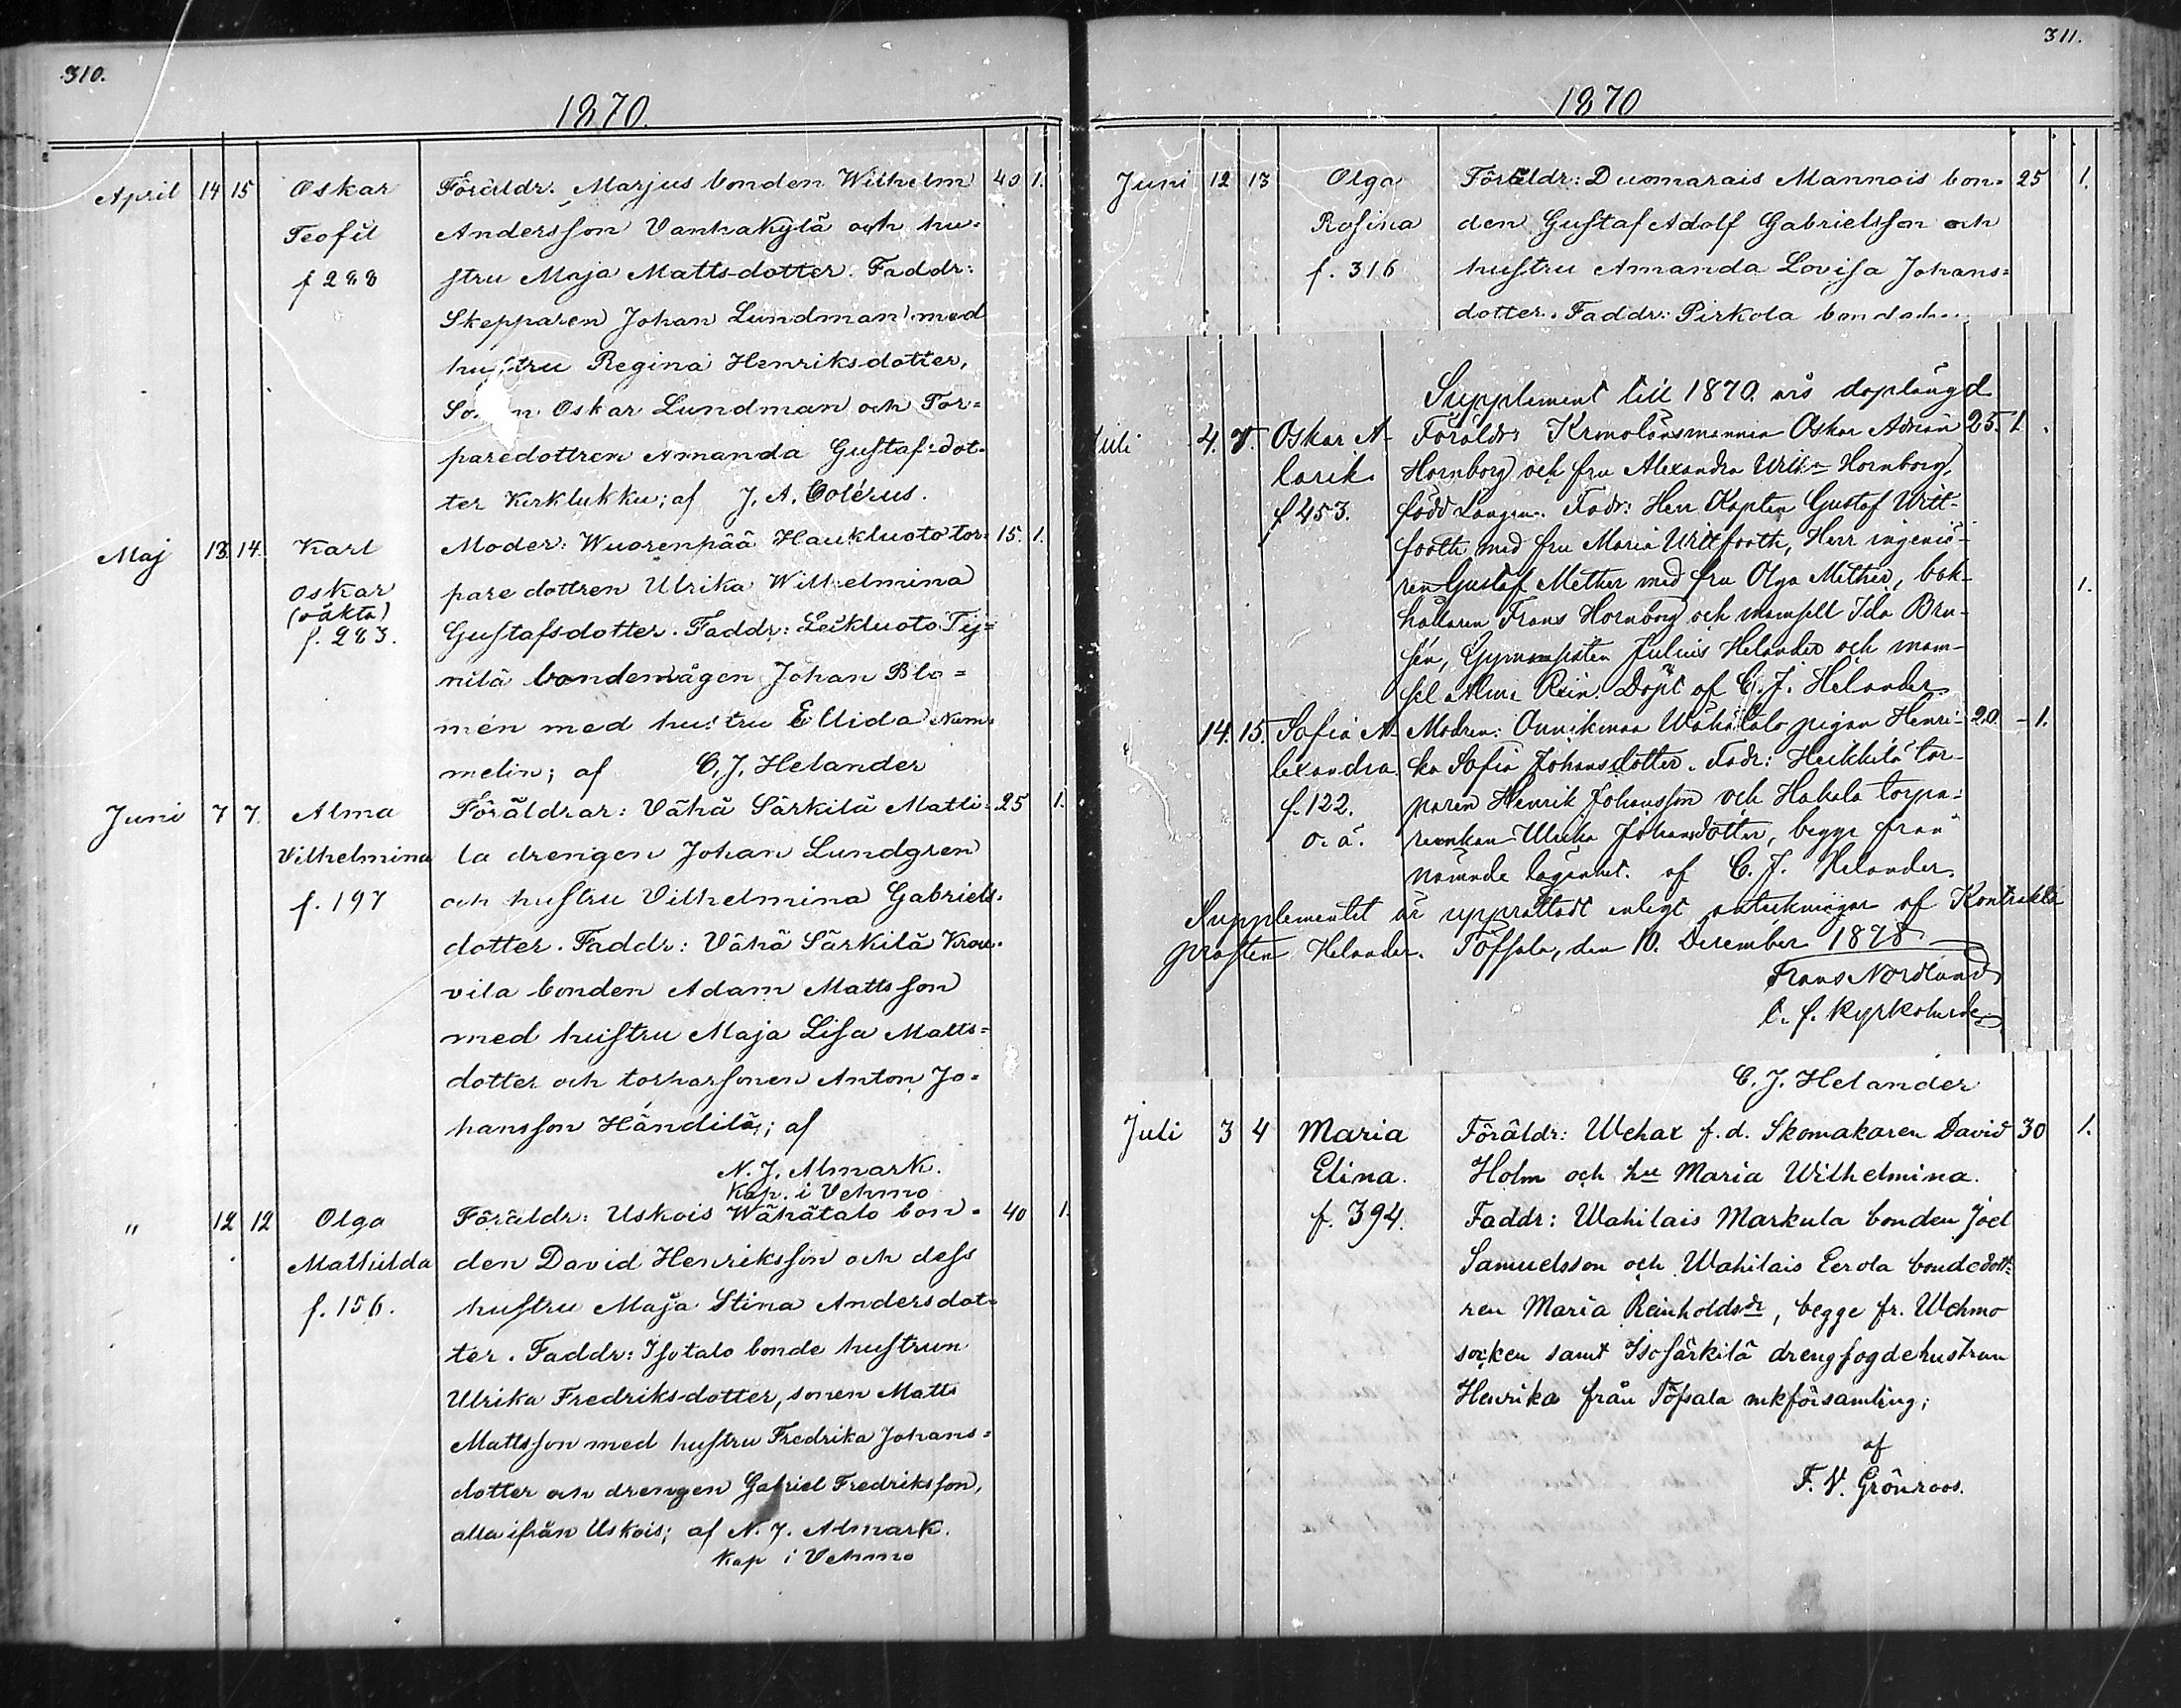 310.
1870.
April 14 15 Oskar Föräldr: Marjus bonden Wilhelm 40 1.
Teofil Andersson Vankakylä och hu-
f 288 stru Maja Matts-dotter. Faddr:
Skepparen Johan Lundman med
hustru Regina Henriks-dotter,
Oskar Lundman och Tor-
paredottren Amanda Gustaf-dot-
ter Kirklukku; af J. A. Colérus.
Maj 13. 14. Karl Moder: Wuorenpää Haukluoto tor- 15. 1.
Oskar pare dottren Ulrika Wilhelmina
(oäkta)
f. 283. Gustafs-dotter. Faddr: Leikluoto Tij-
nilä bondemågen Johan Blo-
mén med hustru Elida Num-
melin; af C. J. Helander
Juni 7 7. Alma Föräldrar: Vähä Särkilä Matti- 25 1.
Vilhelmina la drengen Johan Lundgren
f. 197 och hustru Vilhelmina Gabriels-
dotter. Faddr: Vähä Särkilä Krou-
vila bonden Adam Mattsson
med huistru Maja Lisa Matts-
dotter och torparsonen Anton Jo-
hansson Händilä; af
N. J. Almark.
Kap. i Vehmo
" 12 12 Olga Föräldr: Uskois Wähätalo bon- 40 1.
Mathilda den David Henriksson och dess
f. 156. hustru Maja Stina Andersdot-
ter. Faddr: Isotalo bonde hustrun
Ulrika Fredriks-dotter, sonen Matts
Mattsson med hustru Fredrika Johans-
dotter och drengen Gabriel Fredriksson,
alla ifrån Uskois; af N. J. Almark.
Kap i Vehmo
311.
1870
Juni 12 13 Olga Föräldr: Duomarais Mannois bon- 25 1.
Rosina den Gustaf Adolf Gabrielsson och
f. 316 hustru Amanda Lovisa Johans-
dotter. Faddr: Pirkola
Supplement till 1870 års doplängd
Juli 4. 7. Oskar A- Föräldr: Kronolänsmannen Oskar Adrian 25. 1.
larik Hornborg och fru Alexandra Hornborg,
f 453. född Fadr: Herr Kapten Gustaf Witt-
footh med fru Maria Wittfooth, Herr ingeniö-
ren Gustaf Mether med fru Olga Mether, bok- 1.
hållaren Frans Hornborg och mamsell Ida Bru-
sén, Gymnasisten Julius Helander och mam-
sel Alma Rein. Döpt af C. J. Helander
14. 15. Sofia A- Modren: Wähätalo pigan Henri- 20 - 1.
lexandra ka Sofia Johansdotter. Fadr: Heikkilä tor-
f. 122. paren Henrik Johansson och Hakala torpa-
o. ä. renkan Ulrika Johansdotter, begge från
nämnde lägenhet. af C. J. Helander
Supplementet är upprättadt enligt anteckningar af Kontrakts
prosten Helander. Töfsala, den 10. December 1878
Frans Nordlund
t. f. kyrkoherde
C. J. Helander
Juli 3 4 Maria Föräldr: Wehax f. d. Skomakaren David 30 1.
Elina. Holm och hu Maria Wilhelmina.
f. 394. Faddr: Wahilais Markula bonden Joel
Samuelsson och Wahilais Eerola bondedott-
ren Maria Reinholdsdr, begge fr. Wehmo
socken samt Isosärkilä drengfogdehustrun
Henrika från Töfsala mkförsamling;
af
F. V. Grönroos.